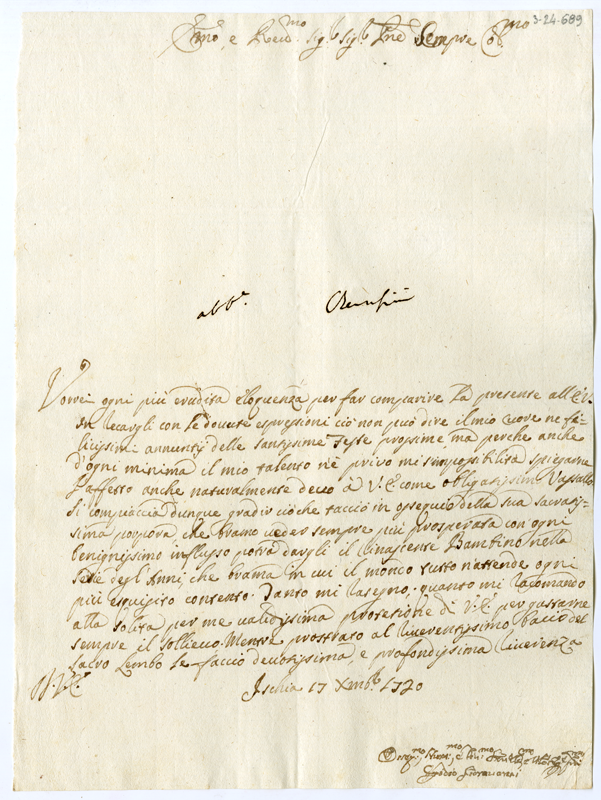 3-24-689
Em̃o, e Rev.mo Sig.r Sig.r Pne Sempre Col.mo
abb.e
Vorrei ogni più erudita eloquenza per far comparire la presente all'E.V.
in recargli con le dovute espressioni ciò non può dire il mio cuore ne fe-
licissimi annuntij delle santissime Feste prossime, ma perche anche
d'ogni minima il mio talento n'è privo mi s'impossibilita spiegarne
l'affetto anche naturalmente devo à V.E. come obligatissim Vassallo
si compiaccia dunque gradir ciò che faccio in ossequio della sua sacratis-
sima porpora, che bramo veder sempre più prosperata con ogni
benignissimo influsso potrà dargli il Rinascente Bambino nella
serie degl'Anni, che brama in cui il mondo tutto n'attende ogni
più esquisito contento. Tanto mi rasegno, quanto mi racomando
alla solita per me validissima protezione di V.E. per gustarne
sempre il sollievo. Mentre prostrato al riverentissimo bacio del
sacro Lembo le faccio devotissima, e profondissima riverenza
D. V. E.
Ischia 17 Xmb.e 1720